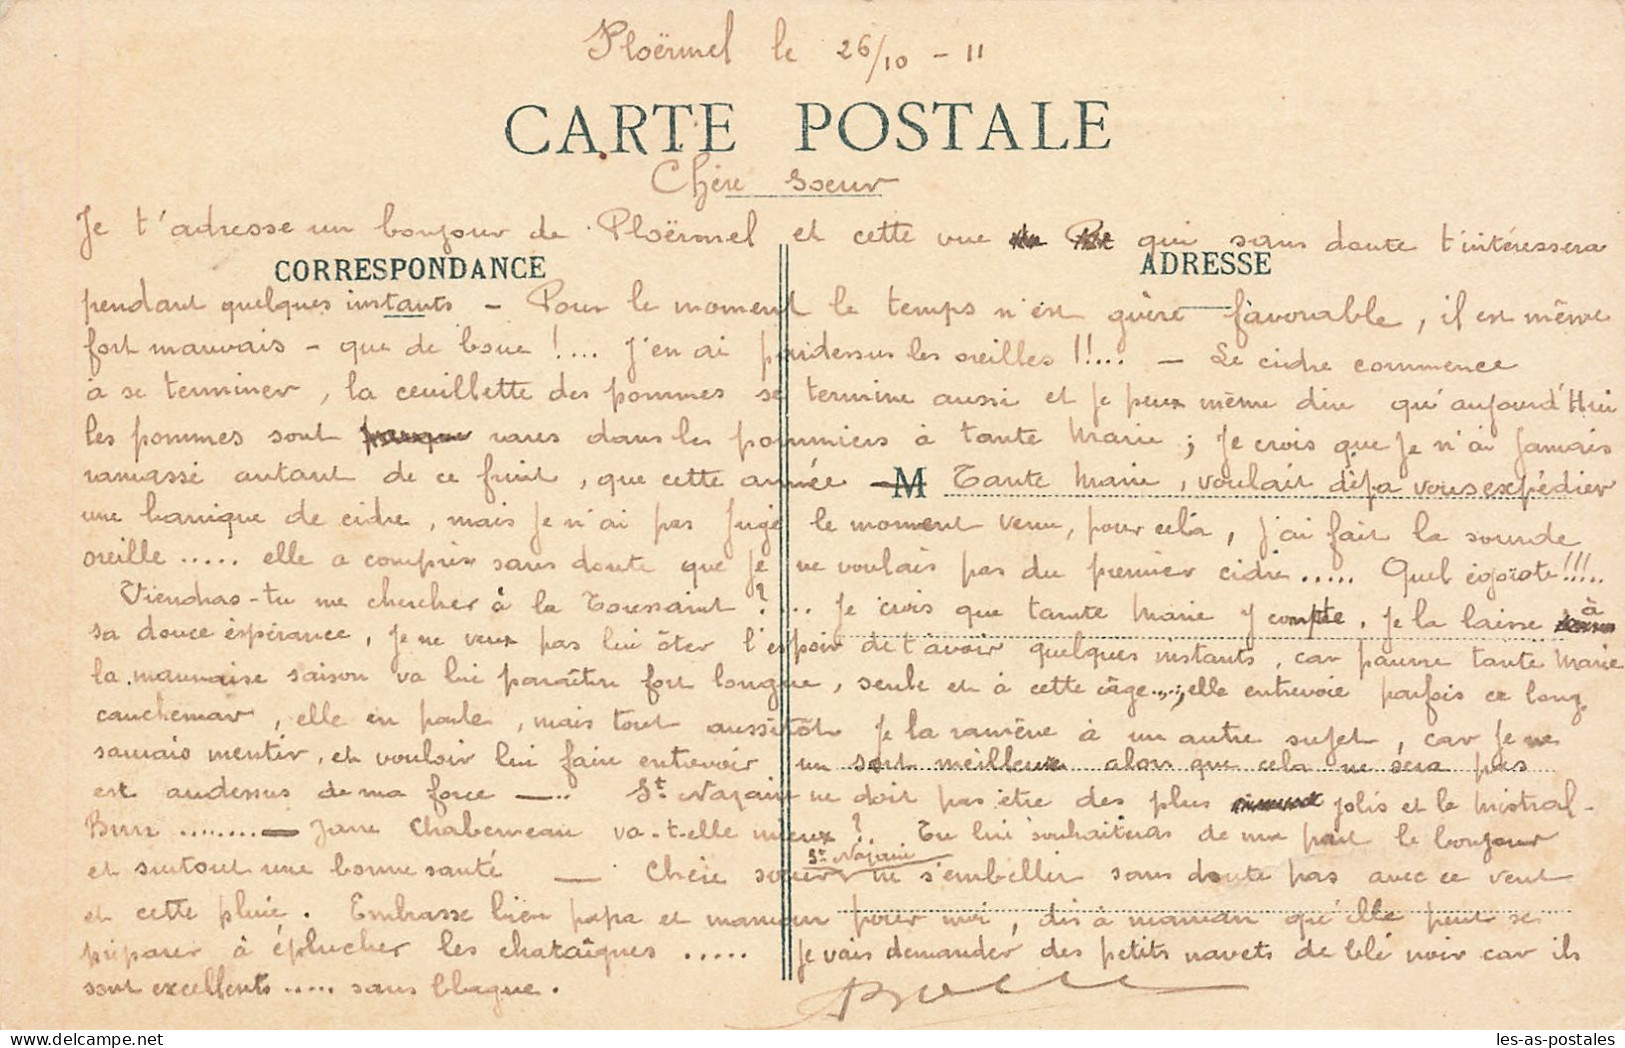 Ploërmel le 26/10 - 11
CARTE POSTALE
Chère soeur
Je t'adresse un bonjour de Ploërmel et cette vue qui sans doute t'intéressera
CORRESPONDANCE
ADRESSE
pendant quelques instants - Pour le moment le temps n'est guère favorable, il est même
fort mauvais - que de boue !... J'en ai pardessus les oreilles !!... - Le cidre commence
à se terminer, la ceuillette des pommes se termine aussi et je peux même dire qu'aujourd'Hui
les pommes sont rares dans les pommiers à tante Marie ; je crois que je n'ai jamais
ramassé autant de ce fruit, que cette année - Tante Marie, voulait déjà vous expédier
M
une barrique de cidre, mais je n'ai pas jugé le moment venu, pour cela, j'ai fait la sourde
oreille ..... elle a compris sans doute que je ne voulais pas du premier cidre ..... Quel égoïste !!!..
Viendras-tu me chercher à la Toussaint ? ... Je crois que tante Marie y compte. Je la laisse à
sa douce éspérance, je ne veux pas lui ôter l'espoir de t'avoir quelques instants, car pauvre tante Marie
la mauvaise saison va lui paraître fort longue, seule et à cette âge..., elle entrevoie parfois ce long
cauchemar, elle en parle, mais tout aussitôt je la ramène à un autre sujet, car je ne
samais mentir, et vouloir lui faire entrevoir un sort meilleur alors que cela ne sera pas
est audessus de ma force -.. St Nazaire ne doit pas être des plus jolis et le mistral-
Brrr ........ - Jane Chaberneau va-t-elle mieux ?. Tu lui souhaiteras de ma part le bonjour
et surtout une bonne santé - Chère soeur St Nazaire ne s'embellir sans doute pas avec ce vent
et cette pluie. Embrasse bien papa et maman pour moi, dis à maman qu'elle peut se
préparer à éplucher les chataîgnes ..... Je vais demander des petits navets de blé noir car ils
sont excellents ..... sans blague.
les-as-postales